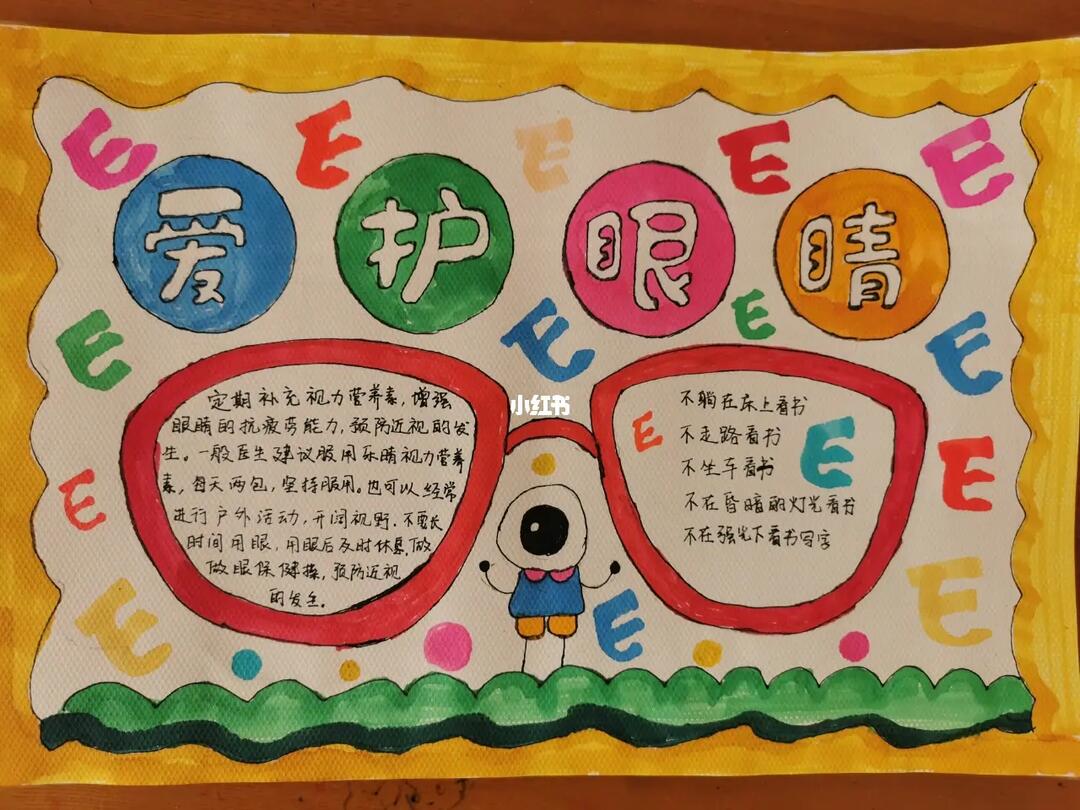 E E E E E
爱护眼睛
E E E E
小红书
定期补充视力营养素,增强
眼睛的抗疲劳能力,预防近视的发
生。一般医生建议服用乐睛视力营养
素,每天两包,坚持服用。也可以经常
进行户外活动,开阔视野.不要长
时间用眼,用眼后及时休息.做
做眼保健操,预防近视
的发生。
不躺在床上看书
不走路看书
不坐车看书
不在昏暗的灯光看书
不在强光下看书写字
E E E E
E E E